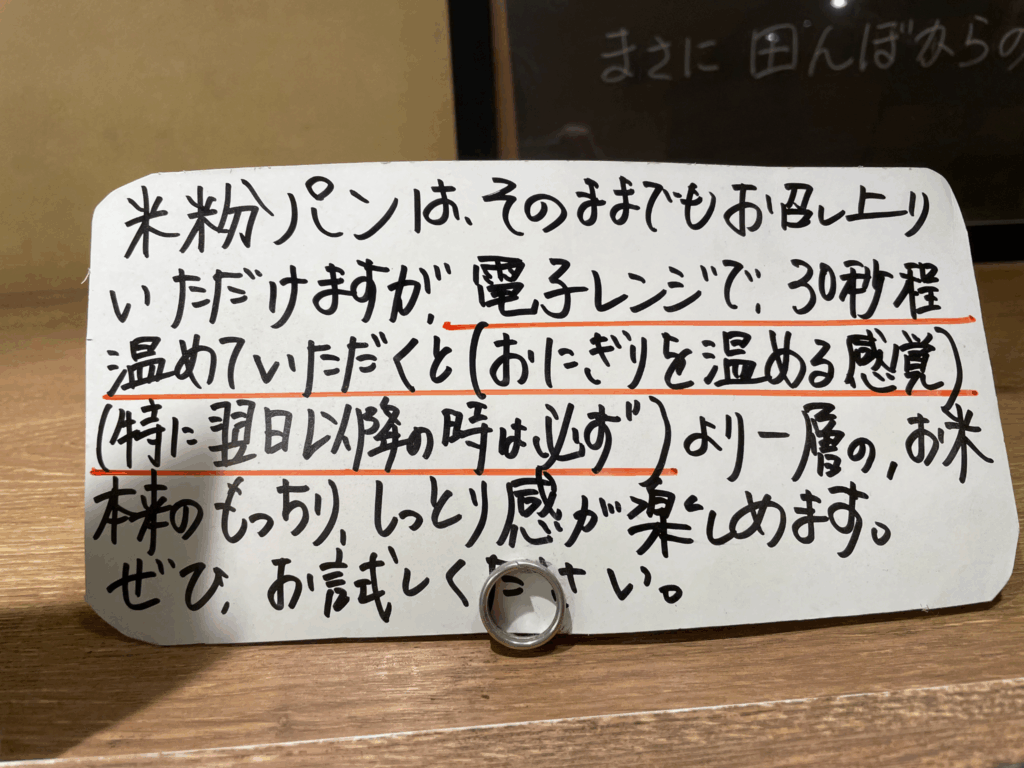 まさに 田んぼからの
米粉パンは、そのままでもお召し上り
いただけますが、電子レンジで、30秒程
温めていただくと(おにぎりを温める感覚)
(特に翌日以降の時は必ず)より一層の、お米
本来のもっちり、しっとり感が楽しめます。
ぜひ、お試しください。